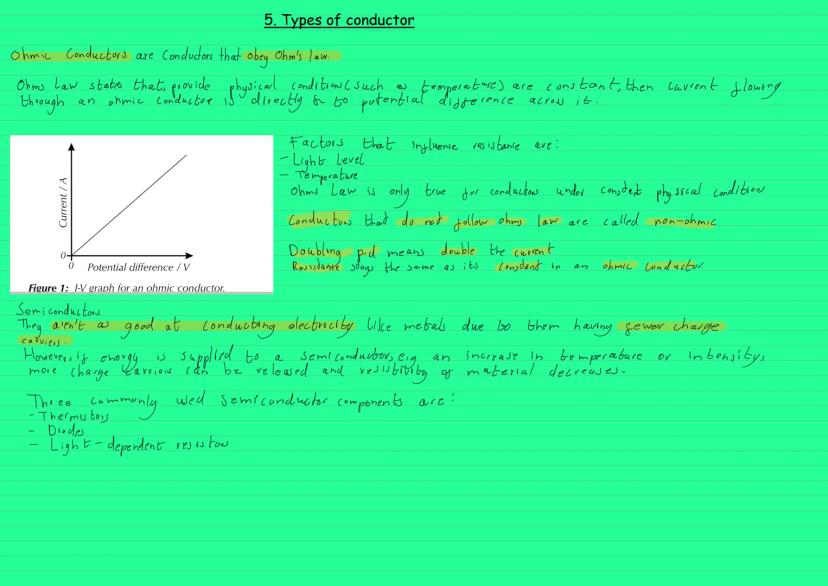 5. Types of conductor
Ohmic Conductors are Conductors that obey Ohm's law.
Ohms Law states that, provide physical conditions (such as temperature) are constant, then current flowing
through an ohmic conductor is directly ∝ to potential difference across it.
Factors that influence resistance are:
- Light Level
- Temperature
Ohms Law is only true for conductors under constant physical condition
Conductors that do not follow ohms law are called non-ohmic
Doubling p.d means double the current
Resistance stays the same as its constant in an ohmic conductor
Current / A
0
0
Potential difference / V
Figure 1: I-V graph for an ohmic conductor.
Semiconductors
They aren't as good at conducting electrocity like metals due to them having fewer charge
carriers.
However, if energy is supplied to a semiconductor, e.g an increase in temperature or intensity,
more charge carriers can be released and resistivity of material decreases.
Three commonly used semiconductor components are:
- Thermistors
- Diodes
- Light-dependent resistors